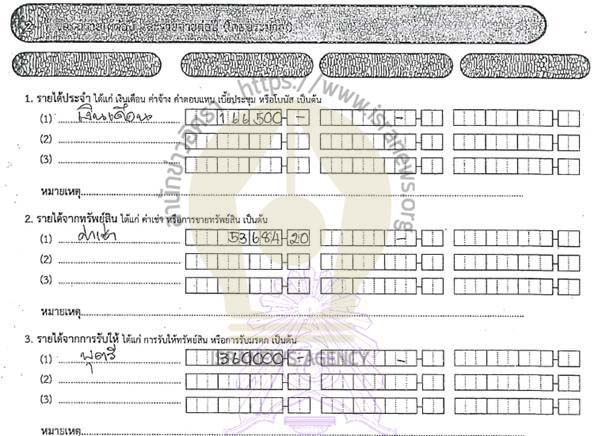 1. รายได้ประจำ ได้แก่ เงินเดือน ค่าจ้าง ค่าตอบแทน เบี้ยประชุม หรือโบนัส เป็นต้น
(1) เงินเดือน 166500 - -
(2)
(3)
หมายเหตุ
2. รายได้จากทรัพย์สิน ได้แก่ ค่าเช่า หรือการขายทรัพย์สิน เป็นต้น
(1) ค่าเช่า 531684-20 -
(2)
(3)
หมายเหตุ
3. รายได้จากการรับให้ ได้แก่ การรับให้ทรัพย์สิน หรือการรับมรดก เป็นต้น
(1) 360000 - -
(2)
(3)
หมายเหตุ
สำนักข่าวอิศรา https://www.isranews.org
S-AGENCY